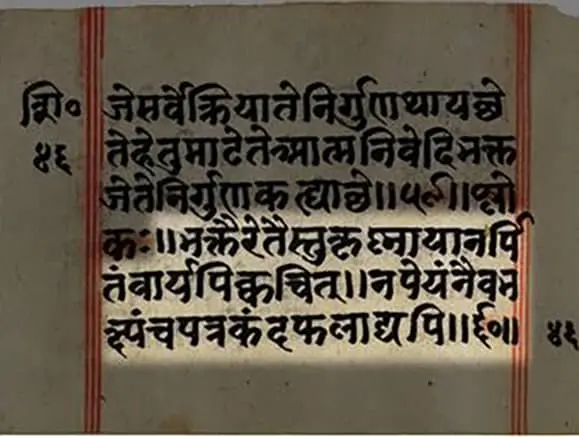 शि० जेसर्वेक्रियातेनिर्गुणथायछे
४६ तेहेतुमाटेतेआत्मनिवेदिभक्त
जेतेनिर्गुणकह्याछे॥५९॥श्लो
कः॥भक्तैरेतैस्तुकृष्णायानर्पि
तंवार्यपिक्वचित्॥नपेयंनैवभ
क्ष्यंचपत्रकंदफलाद्यपि॥६०॥ ४६